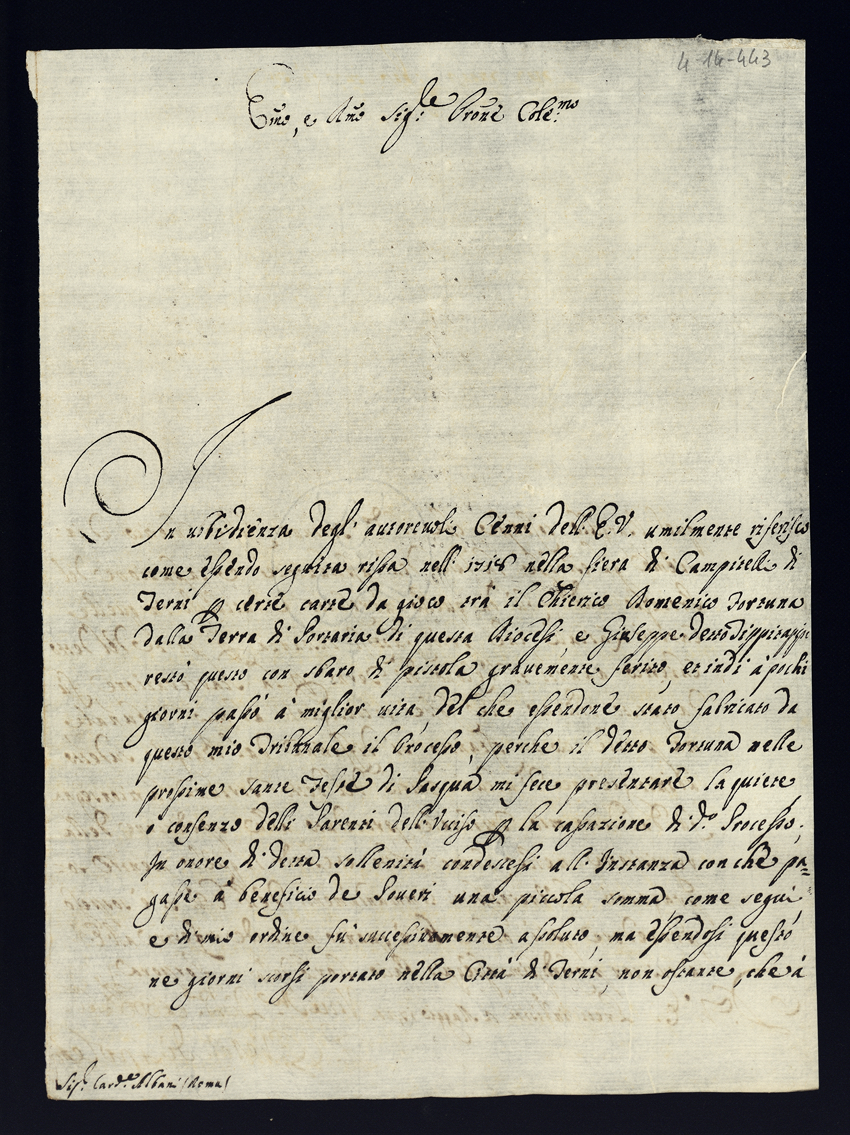 4-14-443
Emo, e Rmo Sig.re Prone Col.mo
In ubbidienza degl' autorevoli Cenni dell' E.V. umilmente riferisco
come essendo seguita rissa nell' 1718 nella fiera di Campitelli di
Terni p certe carte da gioco trà il Chierico Domenico Fortuna
dalla Terra di Portaria di questa Diocesi, e Giuseppe detto
restò questo con sbaro di pistola gravemente ferito, et indi à pochi
giorni passò à miglior vita, del che essendone stato fabricato da
questo mio Tribunale il Processo, perche il detto Fortuna nelle
prossime sante Feste di Pasqua mi fece presentare la quiete
o consenso delli Parenti dell' Ucciso p la cassazione di d.o Processo;
In onore di detta sollenità condescesi all' Instanza con che pa=
gasse à beneficio de Poveri una piccola somma come seguì
e di mio ordine fù successivamente assoluto, ma essendosi questo
ne giorni scorsi portato nella Città di Terni, non ostante, che à
Sig.r Card.le Albani (Roma)